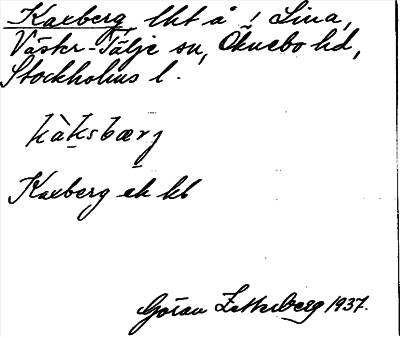 Kaxberg, lht å ! Lina,
Väster-Tälje sn, Öknebo hd,
Stockholms l.
kàksbærj
Kaxberg ek kb
Göran Zetterberg 1937.